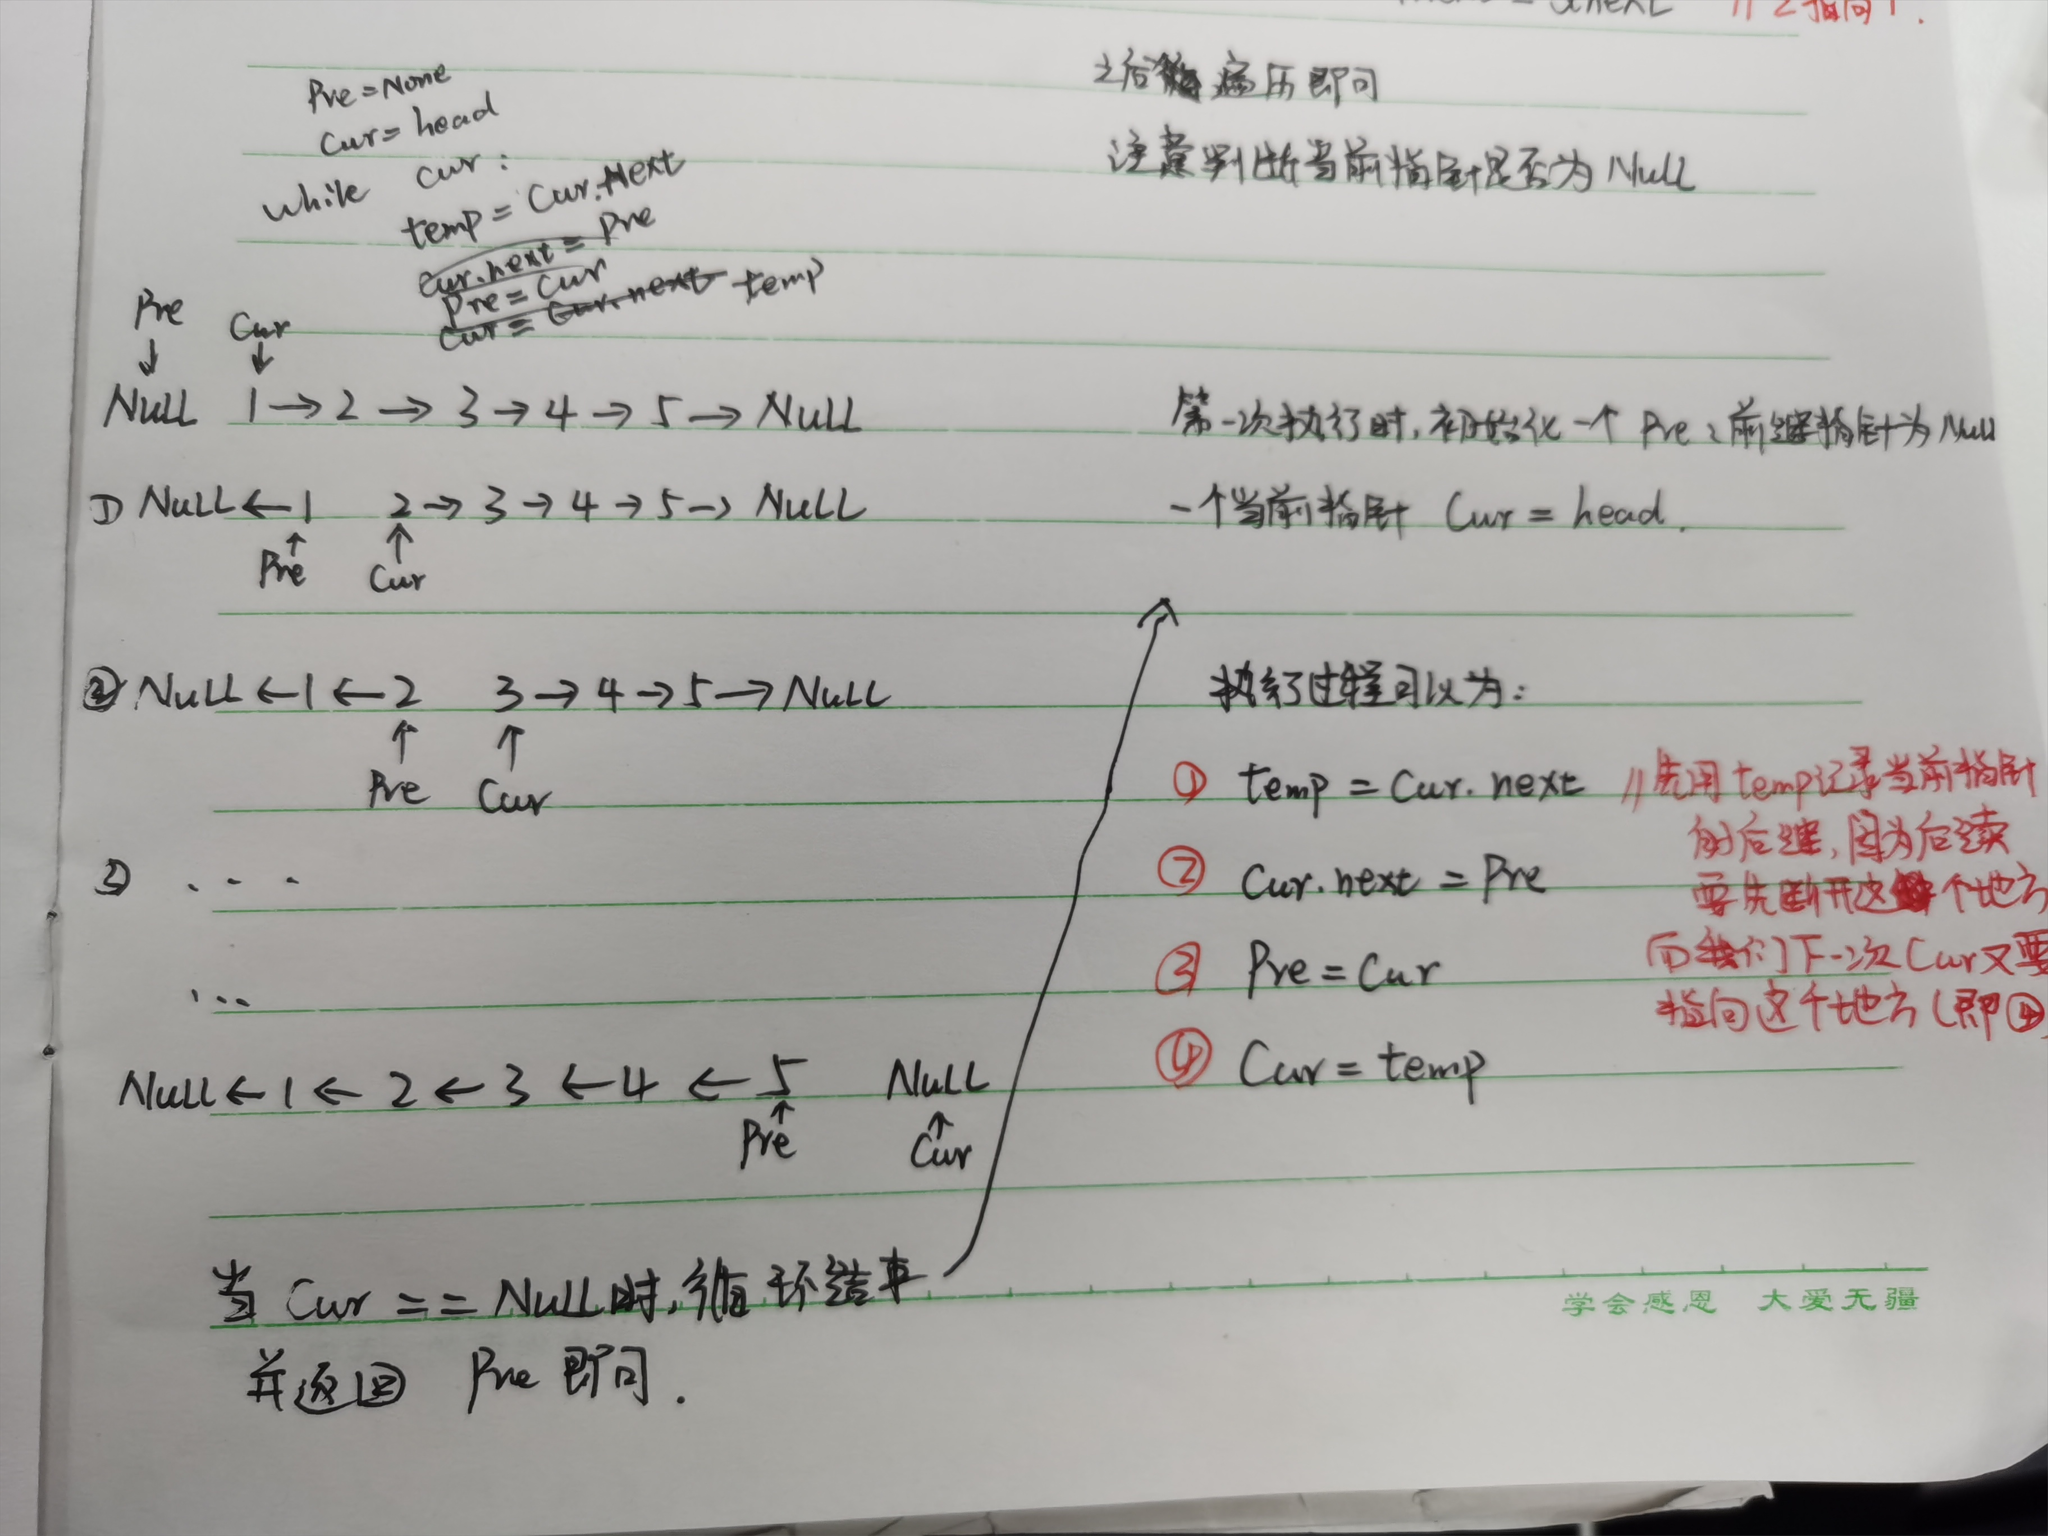 Pre = None
Cur = head
while cur :
temp = Cur.Next
Cur.next = Pre
Pre = Cur
Cur = Cur.next temp
Pre
Cur
↓ ↓
Null 1 → 2 → 3 → 4 → 5 → Null
① Null ← 1 2 → 3 → 4 → 5 → Null
↑ ↑
Pre Cur
② Null ← 1 ← 2 3 → 4 → 5 → Null
↑ ↑
Pre Cur
③ . . .
...
Null ← 1 ← 2 ← 3 ← 4 ← 5 Null
↑ ↑
Pre Cur
当 Cur == Null 时,循环结束
并返回 Pre 即可.
// 2指向1.
之后 遍历即可
注意判断当前指针是否为 Null
第一次执行时,初始化一个 Pre:前继指针为 Null
一个当前指针 Cur = head.
执行过程可以为:
① temp = Cur.next //先用temp记录当前指针
的后继,因为后续
② Cur.next = Pre
要先断开这个地方
③ Pre = Cur
而我们下一次Cur又要
指向这个地方(即④
④ Cur = temp
学会感恩 大爱无疆